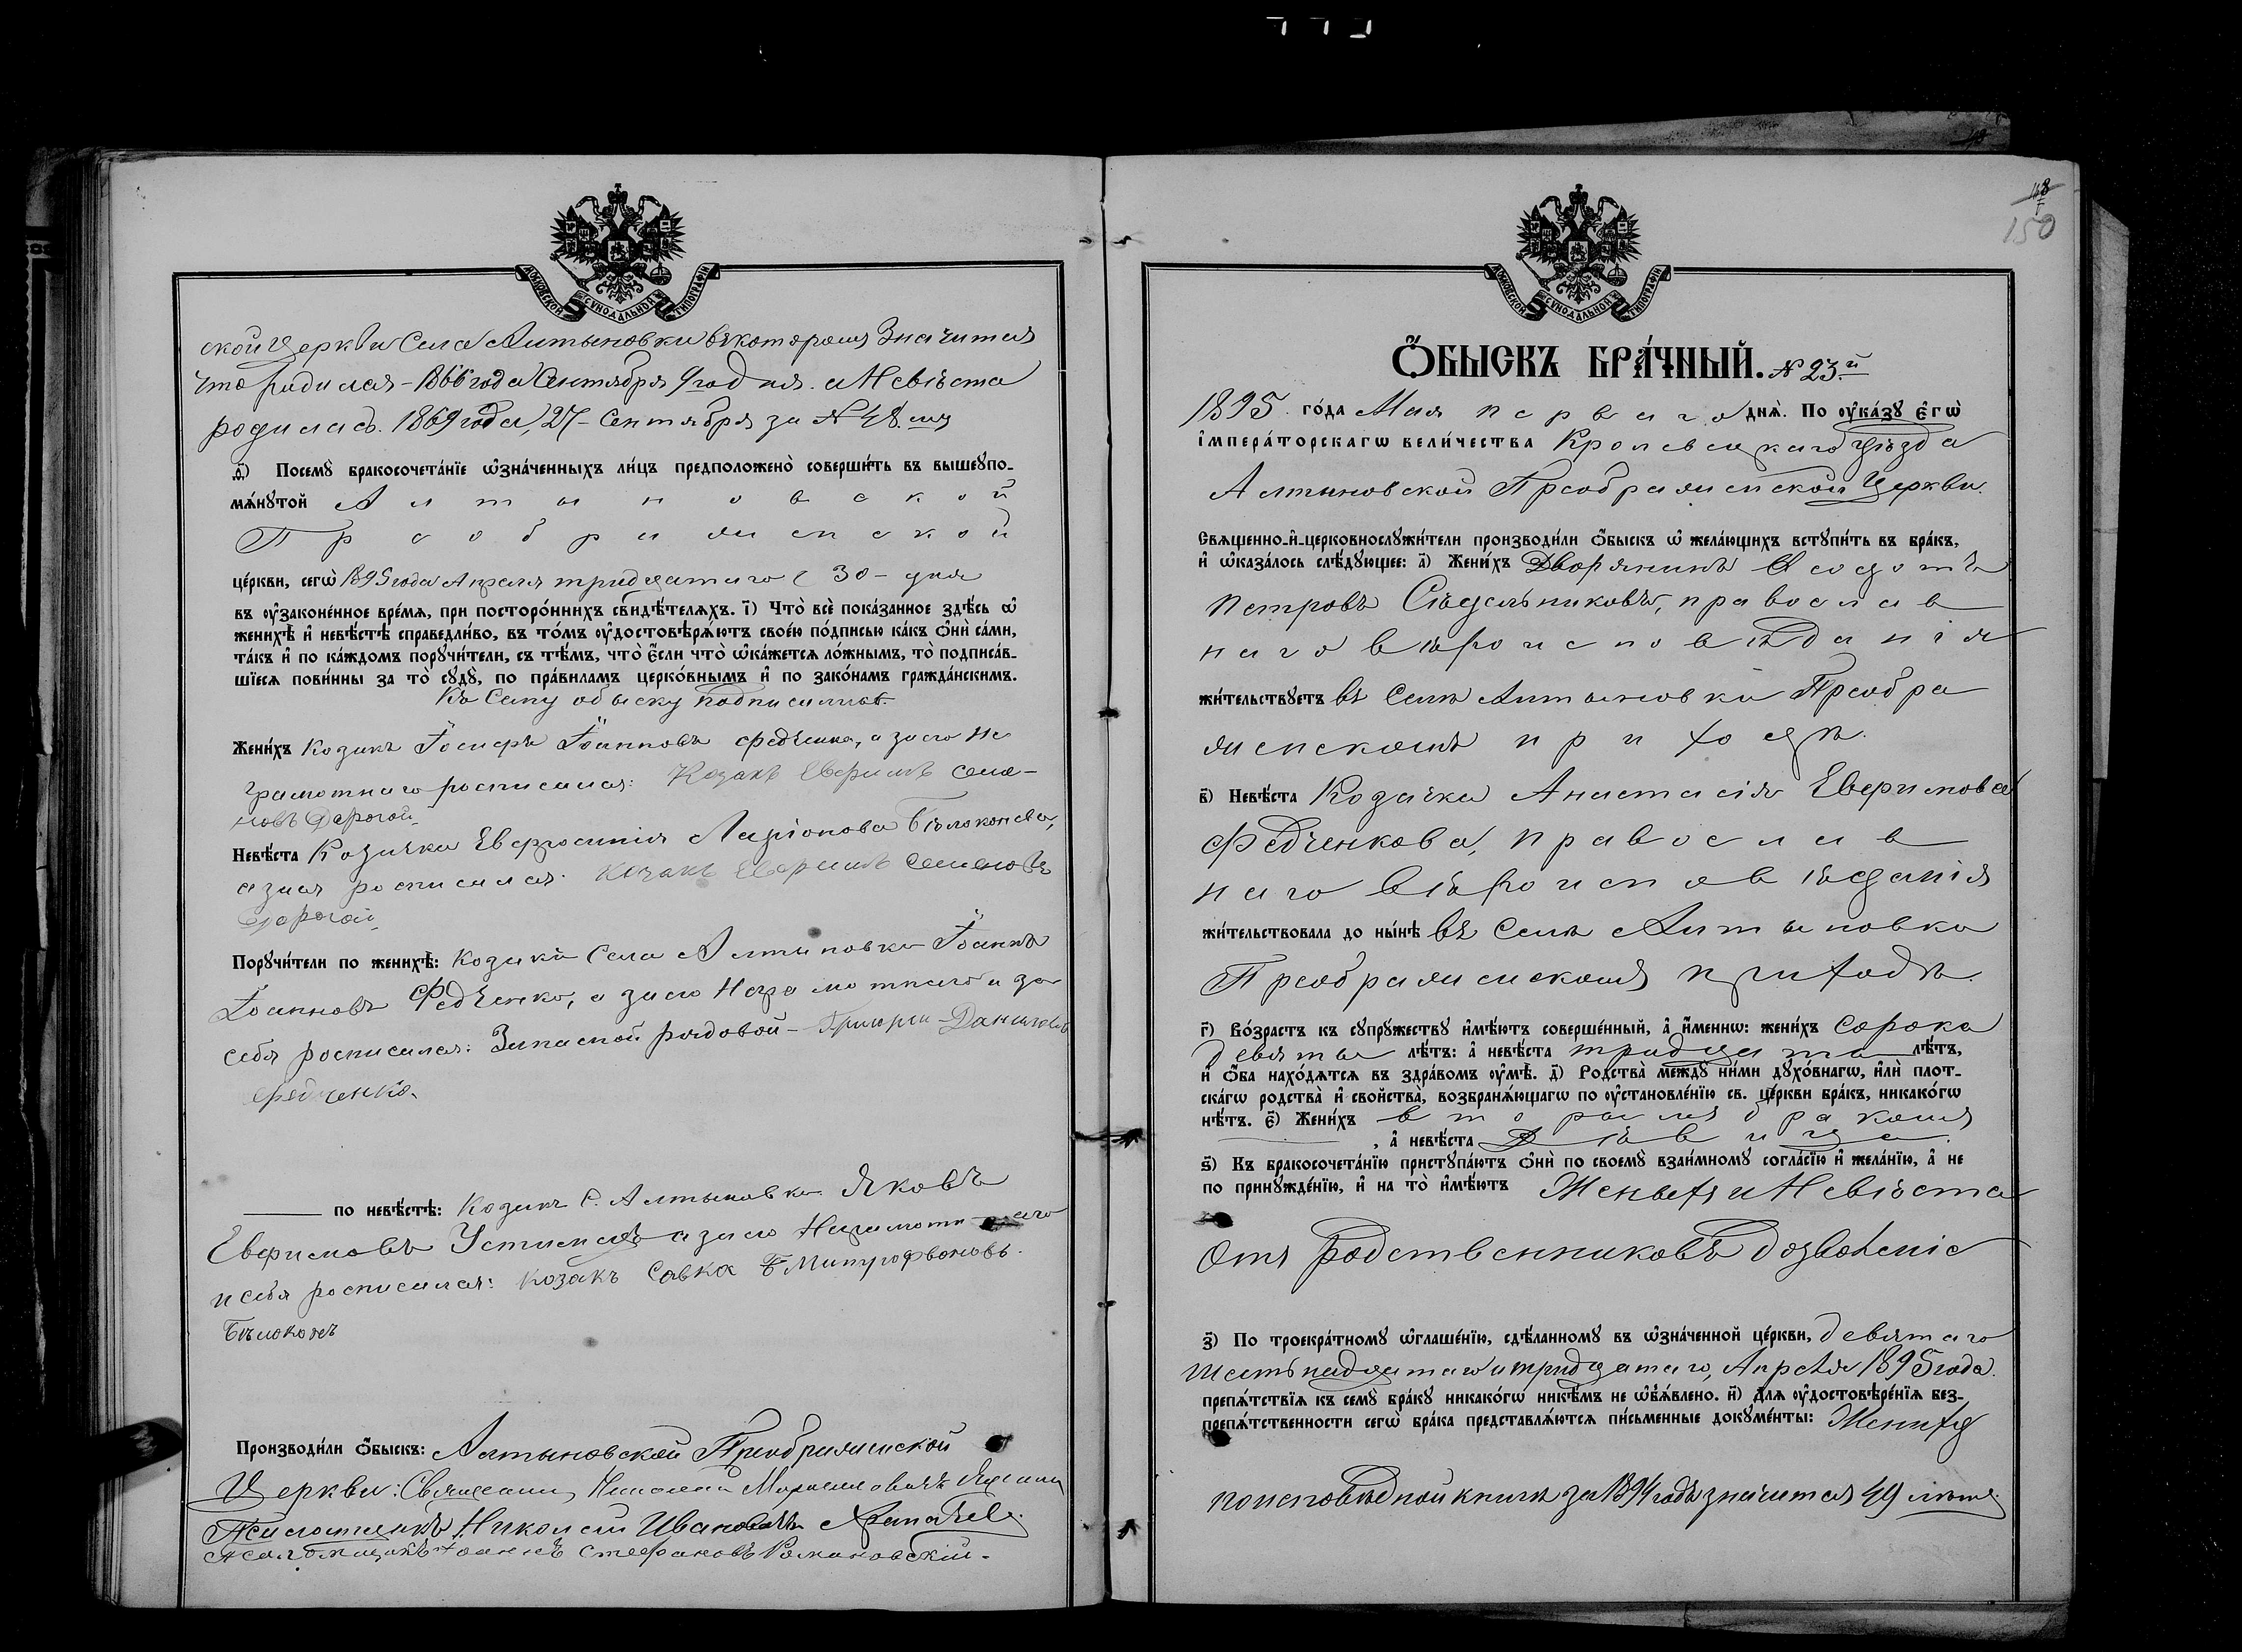 МОСКОВСКОЙ СѴНОДАЛЬНОЙ ТИПОГРАФІИ
ской церкви Села Алтыновки въ которомъ Значится
что родился – 1866 года Сентября 9го дня. а Невѣста
родилась. 1869 года, 27 – Сентября за № 48. мъ
д҃) Посемꙋ̀ бракосочета́нїе ѡ҆зна́ченныхъ ли́цъ предположено̀ соверши́ть въ вышеꙋпо-
мѧ́нꙋтой Алтыновской
Преображенской
це́ркви, сегѡ̀ 1895 года Апреля тридцатаго 30 – дня
въ ᲂу҆законе́нное вре́мѧ, при посторо́ннихъ свидѣ́телѧхъ. і҃) Что̀ всѐ пока́занное здѣ́сь ѡ҆
женихѣ̀ и҆ невѣ́стѣ справедли́во, въ то́мъ ᲂу҆достовѣрѧ́ютъ свое́ю по́дписью ка́къ ѻ҆нѝ са́ми,
та́къ и҆ по ка́ждомъ порꙋчи́тели, съ тѣ́мъ, что̀ є҆́сли что̀ ѡ҆ка́жетсѧ ло́жнымъ, то̀ подписа́в-
шїесѧ пови́нны за то̀ сꙋдꙋ̀, по пра́виламъ церко́внымъ и҆ по зако́намъ гражда́нскимъ.
Къ Сему обыску подписались
Жени́хъ Козакъ Іосифъ Іоанновъ Федченко, а за его не
грамотнаго росписался: Козакъ Евфимъ Семе-
новъ Дорогой
Невѣ́ста Козачка Евфросинія Ларіонова Бѣлоконева,
а за ея росписался. Козакъ Евфимъ Семеновъ
Дорогой
Порꙋчи́тели по женихѣ̀: Козаки Села Алтыновки Іоаннъ
Іоанновъ Федченко, а за его Неграмотнаго и за
себя росписался: Запасной рядовой – Григорій – Даниловъ
Федченко.
по невѣ́стѣ: Козакъ С. Алтыновки Яковъ
Евфимовъ Устименко а за его Неграмотнаго
и себя росписался: Козакъ Савка Митрофановъ
Бѣлоконь
Производи́ли ѻ҆́быскъ: Алтыновской Преображенской
Церкви: Священникъ Николай
Псаломщикъ Николай Ивановъ
Псаломщикъ Іоаннъ Стефановъ Романовскій.
150
МОСКОВСКОЙ СѴНОДАЛЬНОЙ ТИПОГРАФІИ
Ѻ҆́БЫСКЪ БРА́ЧНЫЙ. № 23.й
1895 го́да Мая перваго днѧ̀. По ᲂу҆ка́зꙋ є҆гѡ̀
і҆мпера́торскагѡ вели́чества Кролевецкаго Уѣзда
Алтыновской Преображенской Церкви.
Свѧще́нно-и҆-церковнослꙋжи́тели производи́ли ѻ҆́быскъ ѡ҆ жела́ющихъ встꙋпи́ть въ бра́къ,
и҆ ѡ҆каза́лось слѣ́дꙋющее: а҃) Жени́хъ Дворянинъ Ѳеодотъ
Петровъ Сѣдельниковъ, православ
наго вѣроисповѣданія
жи́тельствꙋетъ въ Селѣ Алтыновки Преобра
женскомъ приходѣ.
в҃) Невѣ́ста Козачка Анастасія Евфимова
Федченкова, православ
наго вѣроисповѣданія
жи́тельствовала до ны́нѣ въ Селѣ Алтыновка
Преображенскомъ приходѣ.
г҃) Во́зрастъ къ сꙋпрꙋ́жествꙋ и҆мѣ́ютъ соверше́нный, а҆ и҆́меннѡ: жени́хъ сорока
девяти лѣ́тъ: а҆ невѣ́ста тридцати лѣ́тъ,
и҆ ѻ҆́ба нахо́дѧтсѧ въ здра́вомъ ᲂу҆мѣ̀. д҃) Родства̀ междꙋ̀ ни́ми дꙋхо́внагѡ, и҆лѝ плот-
ска́гѡ родства̀ и҆ свойства̀, возбранѧ́ющагѡ по ᲂу҆становле́нїю св. це́ркви бра́къ, никако́гѡ
нѣ́тъ. є҃) Жени́хъ вторымъ бракомъ
, а҆ невѣ́ста Дѣвица.
ѕ҃) Къ бракосочета́нїю пристꙋпа́ютъ ѻ҆нѝ по своемꙋ̀ взаи́мномꙋ согла́сїю и҆ жела́нїю, а҆ не
по принꙋжде́нїю, и҆ на то̀ и҆мѣ́ютъ Женихъ и Невѣста
Отъ Родственниковъ дозволеніе
з҃) По троекра́тномꙋ ѡ҆глаше́нїю, сдѣ́ланномꙋ въ ѡ҆зна́ченной це́ркви, девятаго
шестьнадцатаго и тридцатаго, Апреля 1895 года.
препѧ́тствїѧ къ семꙋ̀ бра́кꙋ никако́гѡ никѣ́мъ не ѡ҆б̾ѧ́влено. и҃) Длѧ ᲂу҆достовѣре́нїѧ без-
препѧ́тственности сегѡ̀ бра́ка представлѧ́ютсѧ пи́сьменные докꙋме́нты: Женихъ
по исповѣдной книгѣ за 1894 годъ значится 49 лѣтъ.